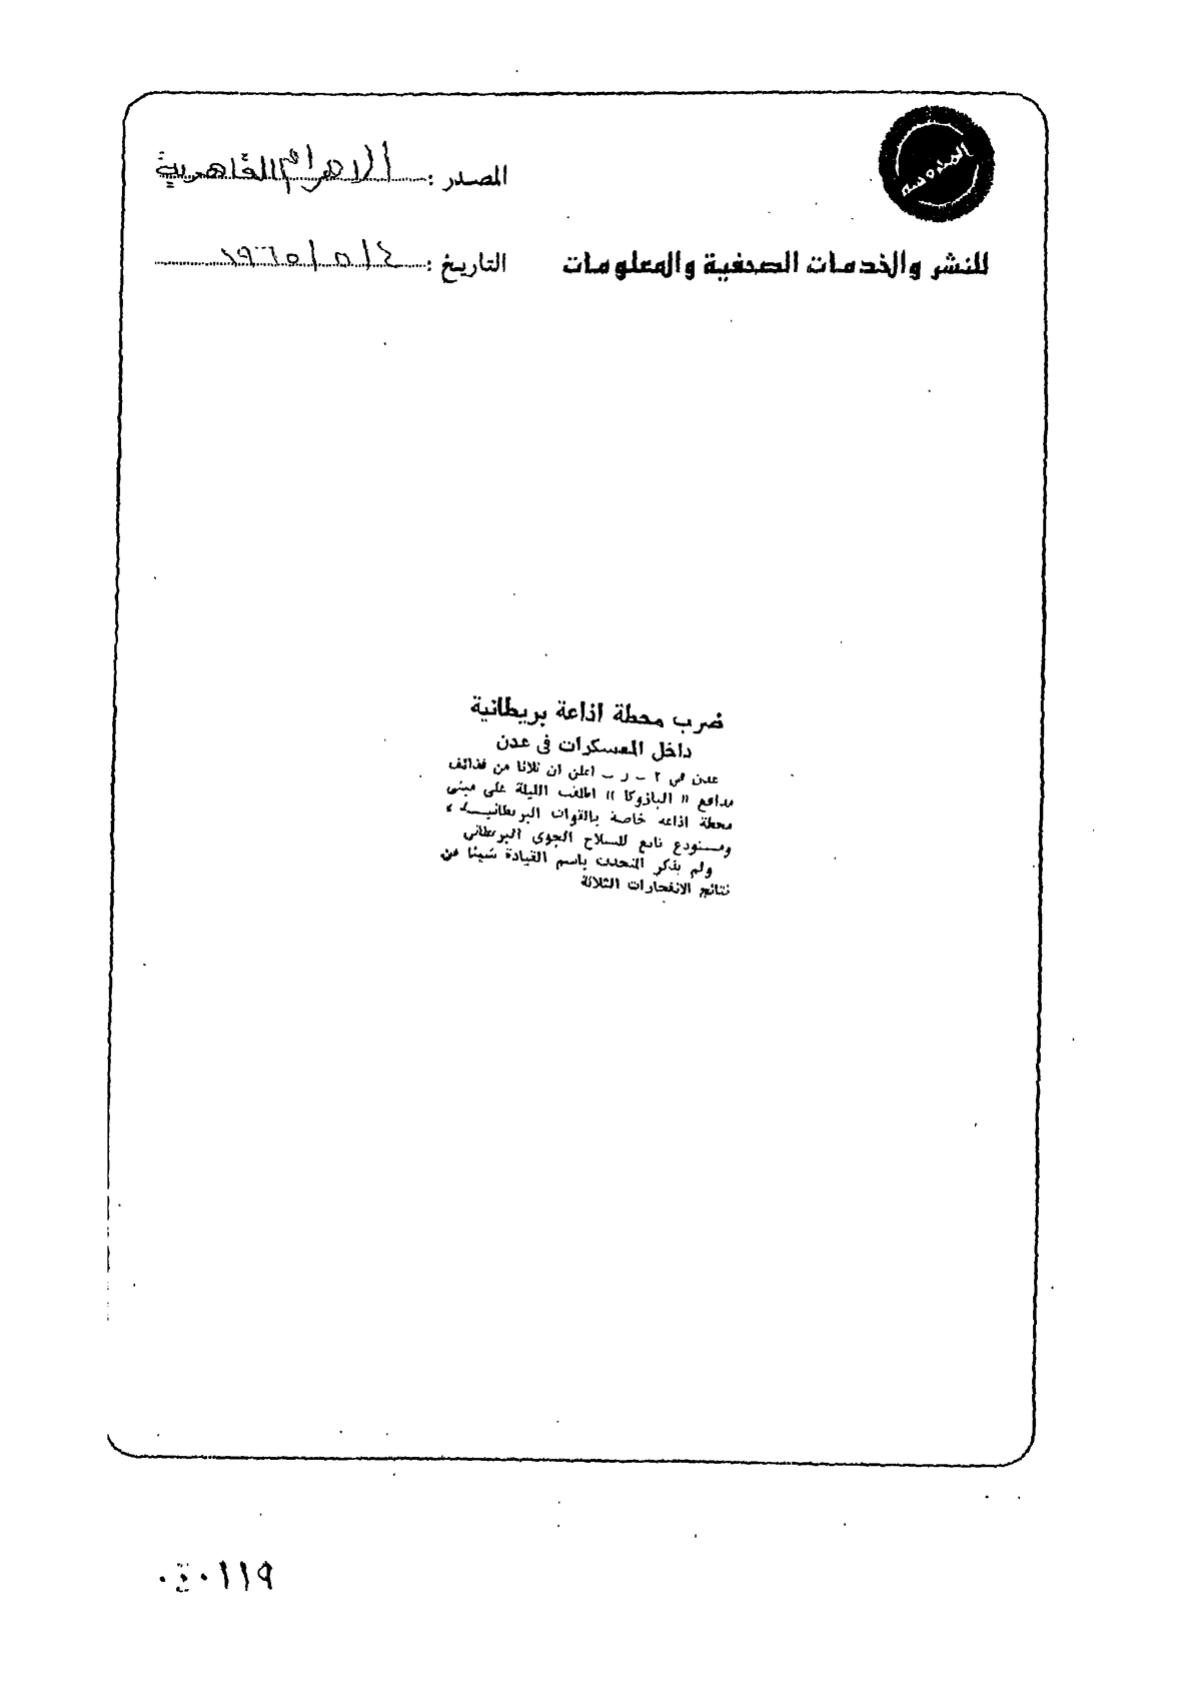 المحروسة
المصدر : الاهرام القاهرية
للنشر والخدمات الصحفية والمعلومات
التاريخ : ٤ / ٥ / ١٩٦٥
ضرب محطة اذاعة بريطانية
داخل المعسكرات فى عدن
عدن فى ٢ ـ ر ـ اعلن ان ثلاثا من قذائف
مدافع « البازوكا » اطلقت الليلة على مبنى
محطة اذاعة خاصة بالقوات البريطانيــة ،
ومستودع تابع للسلاح الجوى البريطانى
ولم يذكر المتحدث باسم القيادة شيئا عن
نتائج الانفجارات الثلاثة